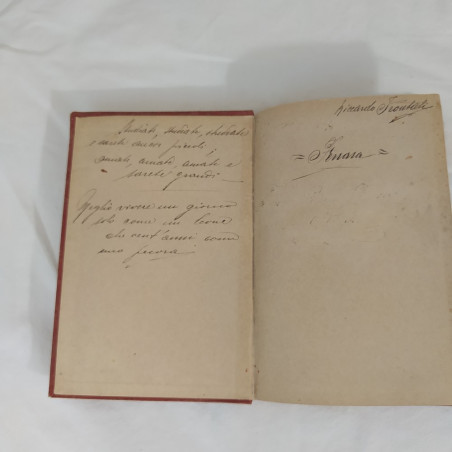 Studiate, studiate, studiate
e sarete ancor piccoli
amate, amate, amate e
sarete grandi
Meglio vivere un giorno
solo come un leone
che cent'anni come
una pecora
Riccardo
= Smara =